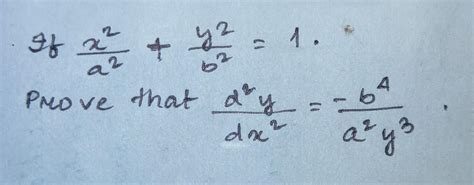 If x²/a² + y²/b² = 1.
Prove that d²y/dx² = -b⁴/a²y³.